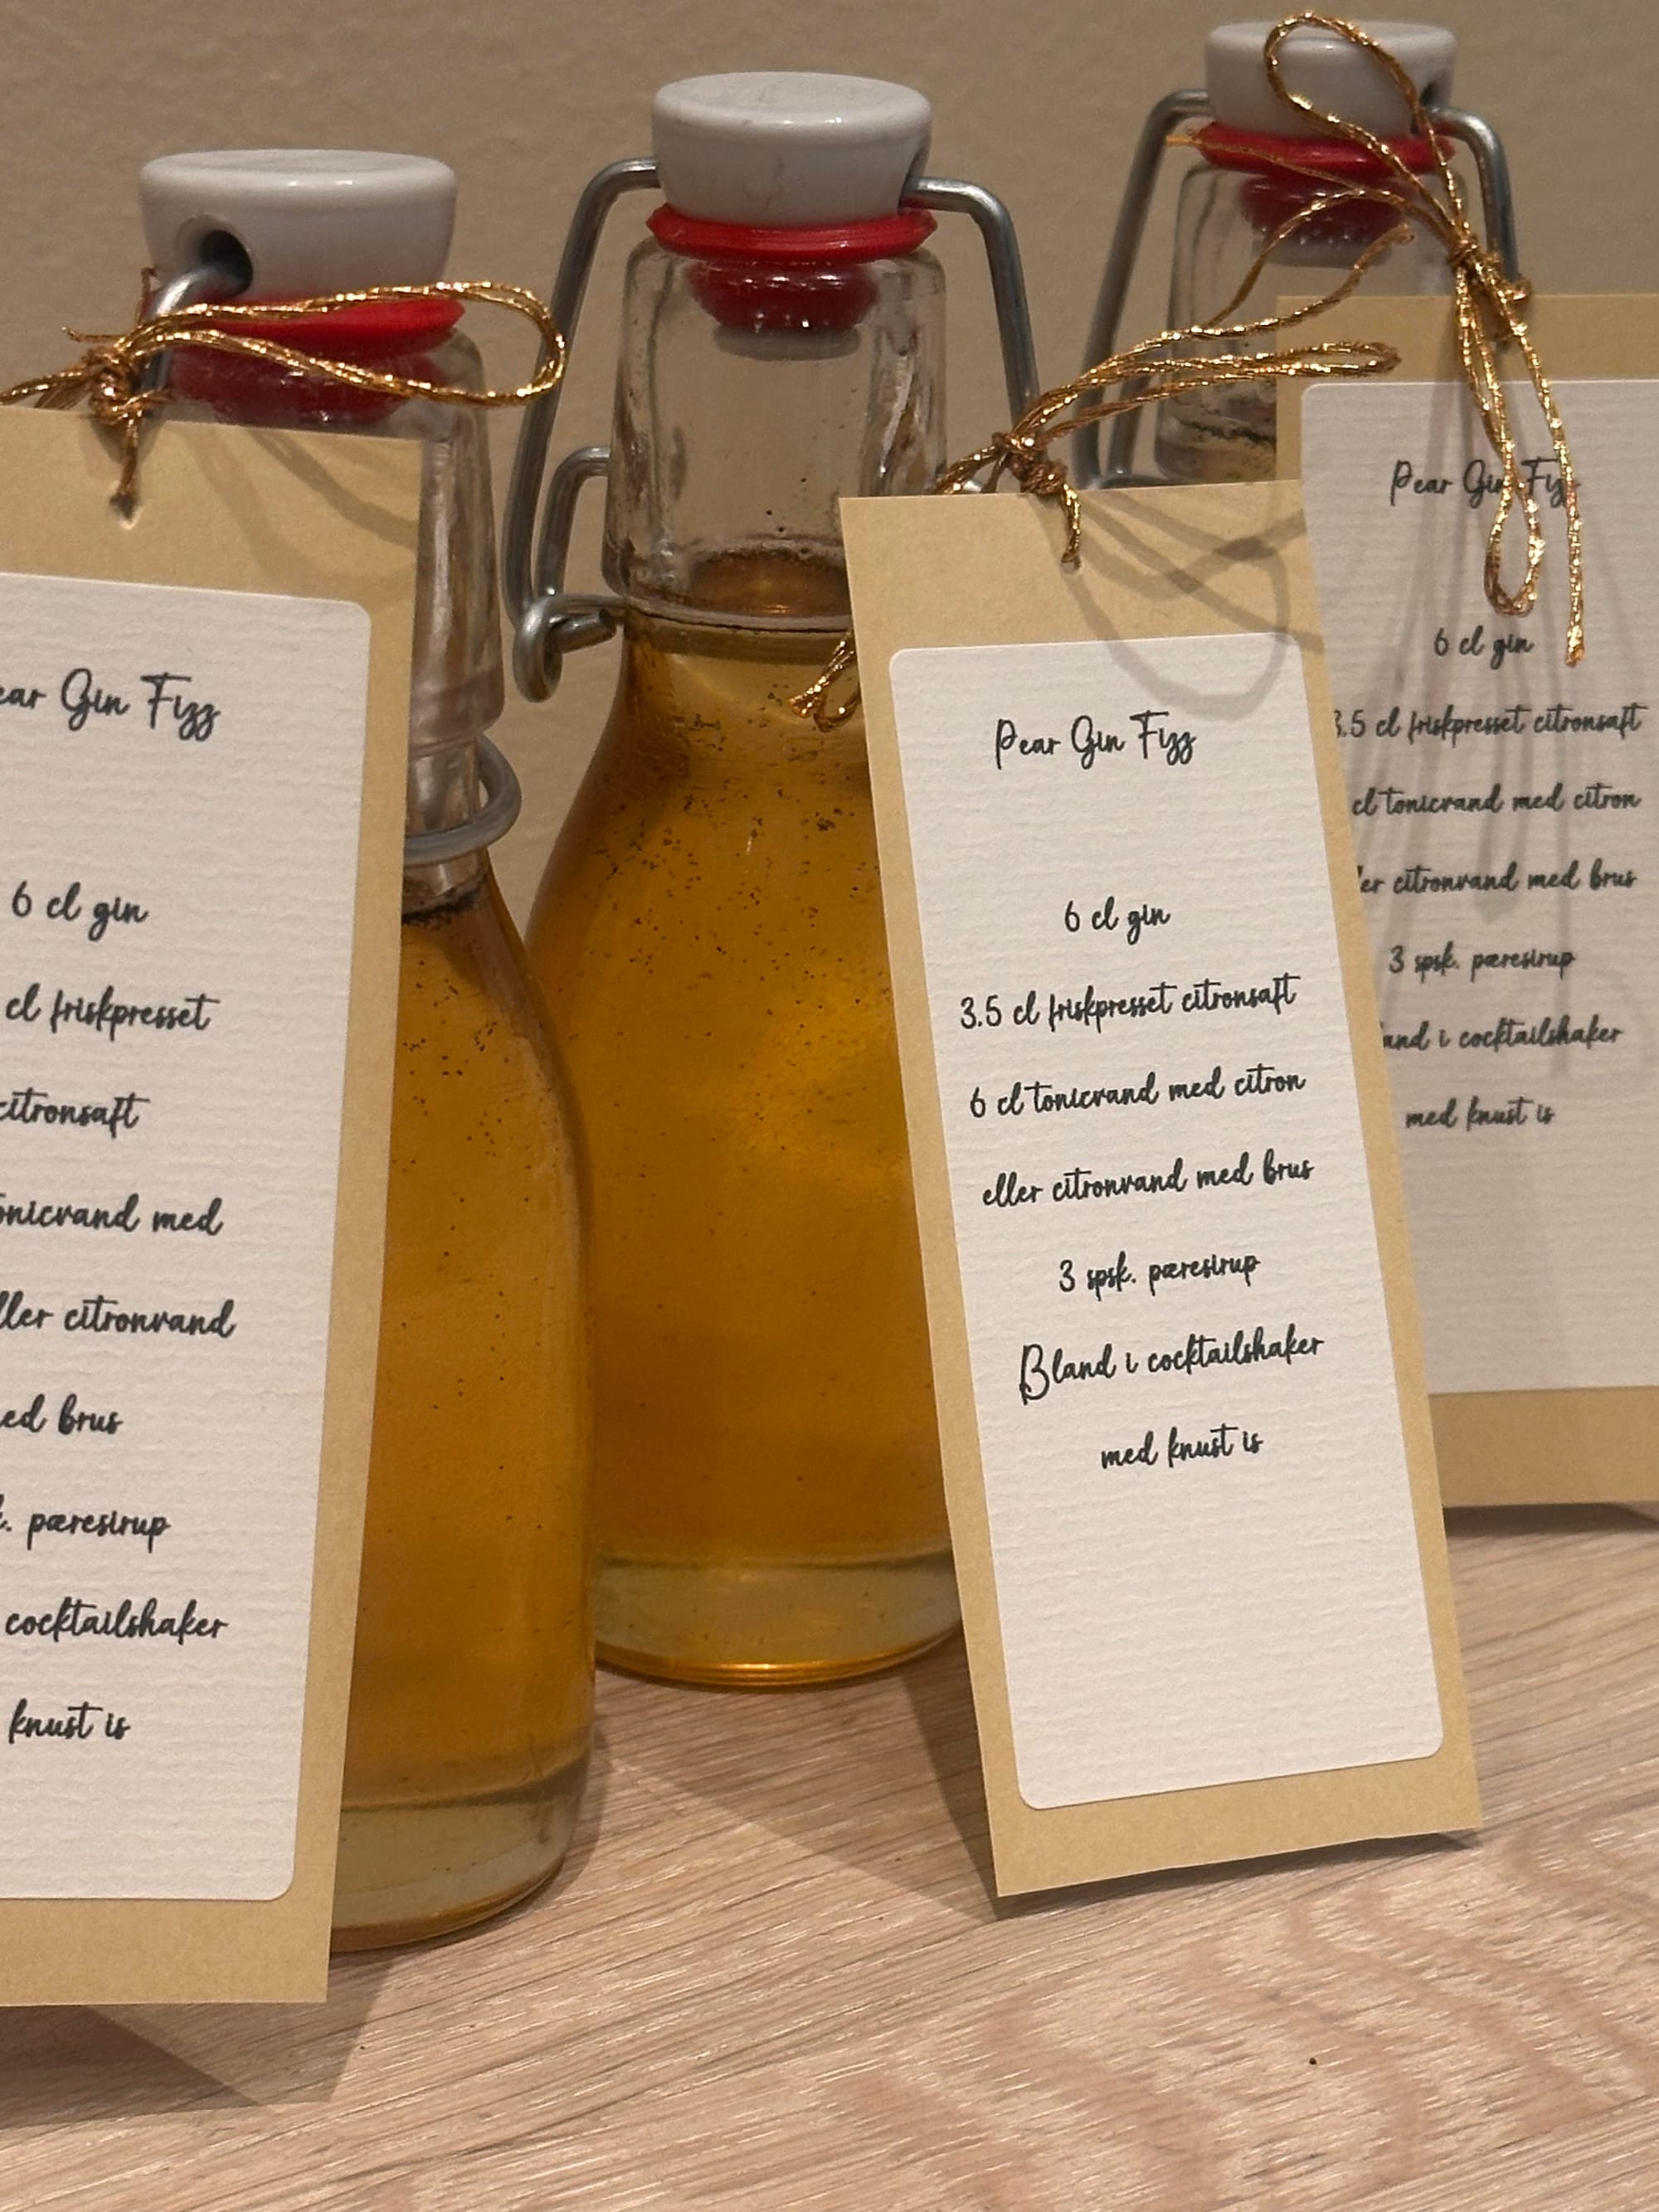 Gin Fizz
6 cl gin
cl friskpresset
citronsaft
med
citronvand
brus
pæresirup
cocktailshaker
knust is
Pear Gin Fizz
6 cl gin
3.5 cl friskpresset citronsaft
6 cl tonicvand med citron
eller citronvand med brus
3 spsk. pæresirup
Bland i cocktailshaker
med knust is
Pear Gin Fizz
6 cl gin
3.5 cl friskpresset citronsaft
cl tonicvand med citron
citronvand med brus
3 spsk. pæresirup
i cocktailshaker
med knust is